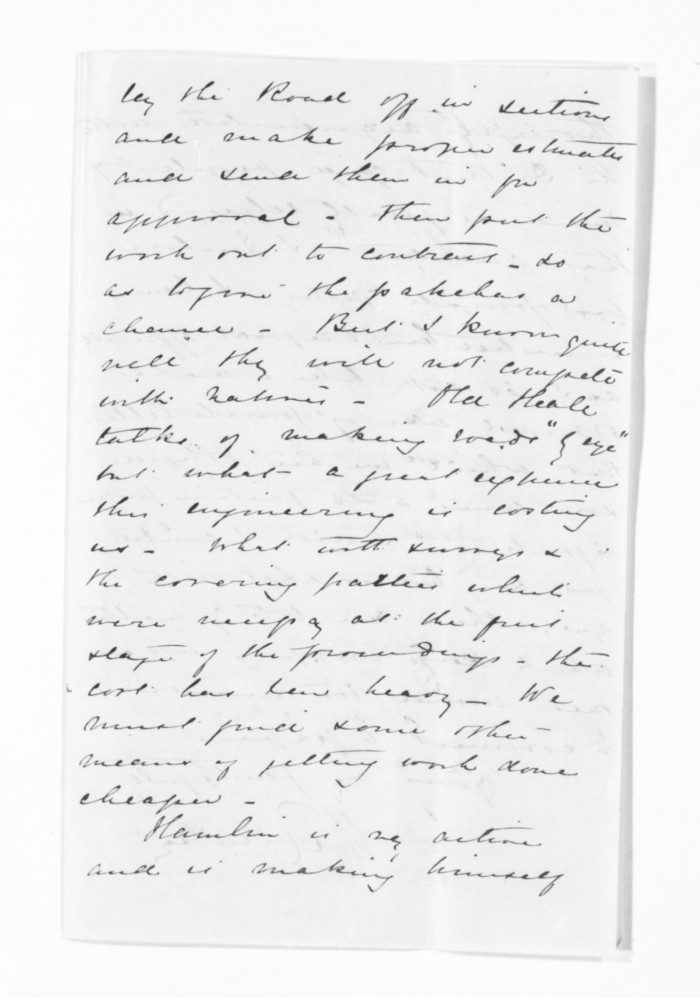 lay the Road off in sections
and make proper estimates
and send them in for
approval - then put the
work out to contract - so
as to give the pakehas a
chance - But I know quite
well they will not compete
with natives - Old Heale
talks of making roads "by eye"
but what a great expense
this engineering is costing
us - What with surveys &
the covering parties which
were necessy at the first
stage of the proceedings - the
cost has been heavy - We
must find some other
means of getting work done
cheaper -
Hamlin is vy active
and is making himself